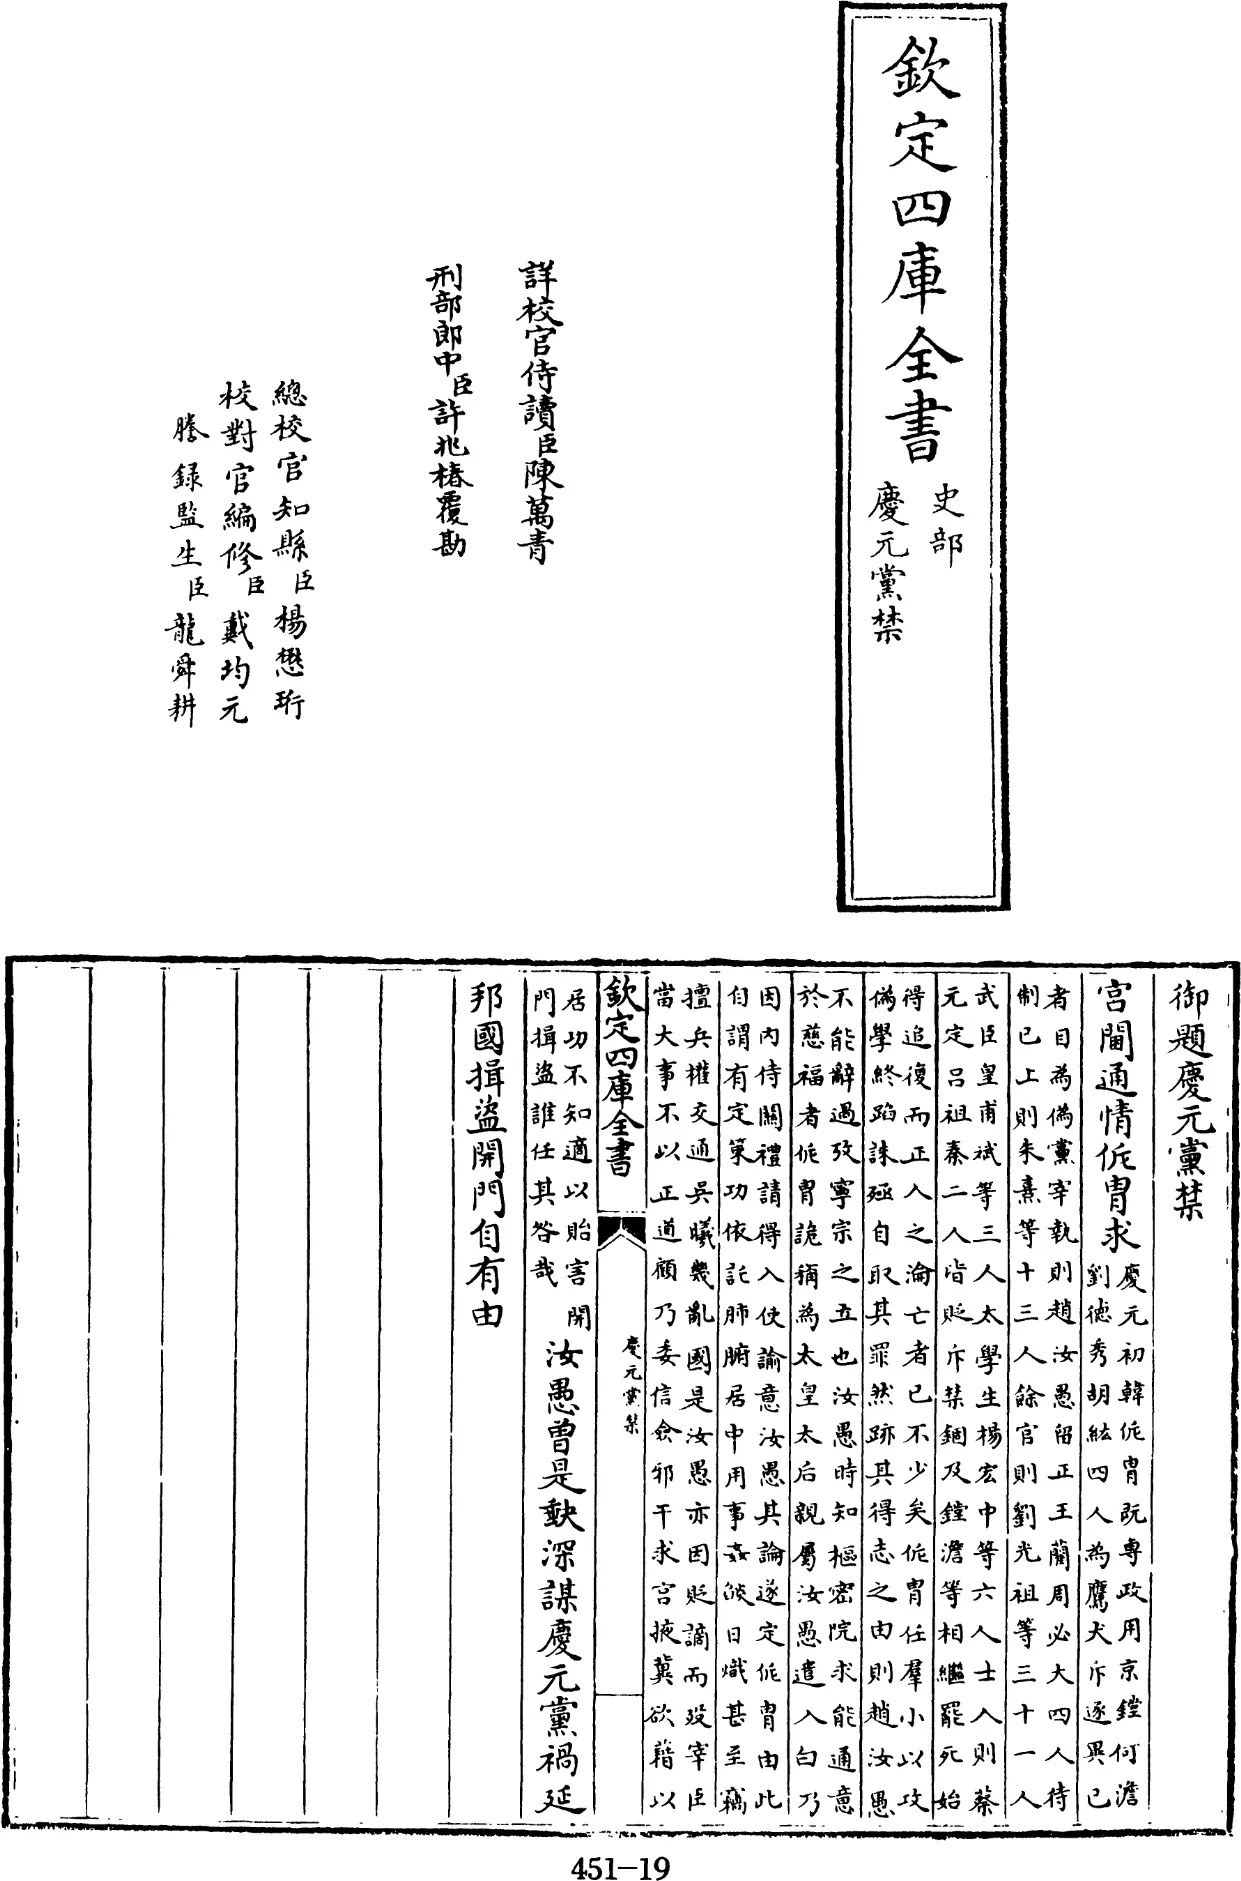 欽定四庫全書
史部
慶元黨禁
詳校官侍讀臣陳萬青
刑部郎中臣許兆椿覆勘
總校官知縣臣楊懋珩
校對官編修臣戴均元
謄錄監生臣龍舜耕
御題慶元黨禁
宫闈通情侂胄求
慶元初韓侂胄既專政用京鏜何澹
劉德秀胡紘四人為鷹犬斥逐異已
者目為偽黨宰執則趙汝愚留正王藺周必大四人待
制已上則朱熹等十三人餘官則劉光祖等三十一人
武臣皇甫斌等三人太學生楊宏中等六人士人則蔡
元定吕祖泰二人皆貶斥禁錮及鏜澹等相繼罷死始
得追復而正人之淪亡者已不少矣侂胄任羣小以攻
偽學終蹈誅殛自取其罪然跡其得志之由則趙汝愚
不能辭過攷寧宗之立也汝愚時知樞密院求能通意
於慈福者侂胄詭稱為太皇太后親屬汝愚遣入白乃
因内侍關禮請得入使諭意汝愚其論遂定侂胄由此
自謂有定策功依託肺腑居中用事姦燄日熾甚至竊
擅兵權交通吳曦幾亂國是汝愚亦因貶謫而歿宰臣
當大事不以正道顧乃委信僉邪干求宫掖冀欲藉以
欽定四庫全書
慶元黨禁
居功不知適以貽害開
門揖盜誰任其咎哉
汝愚曾是缺深謀慶元黨禍延
邦國揖盜開門自有由
451-19